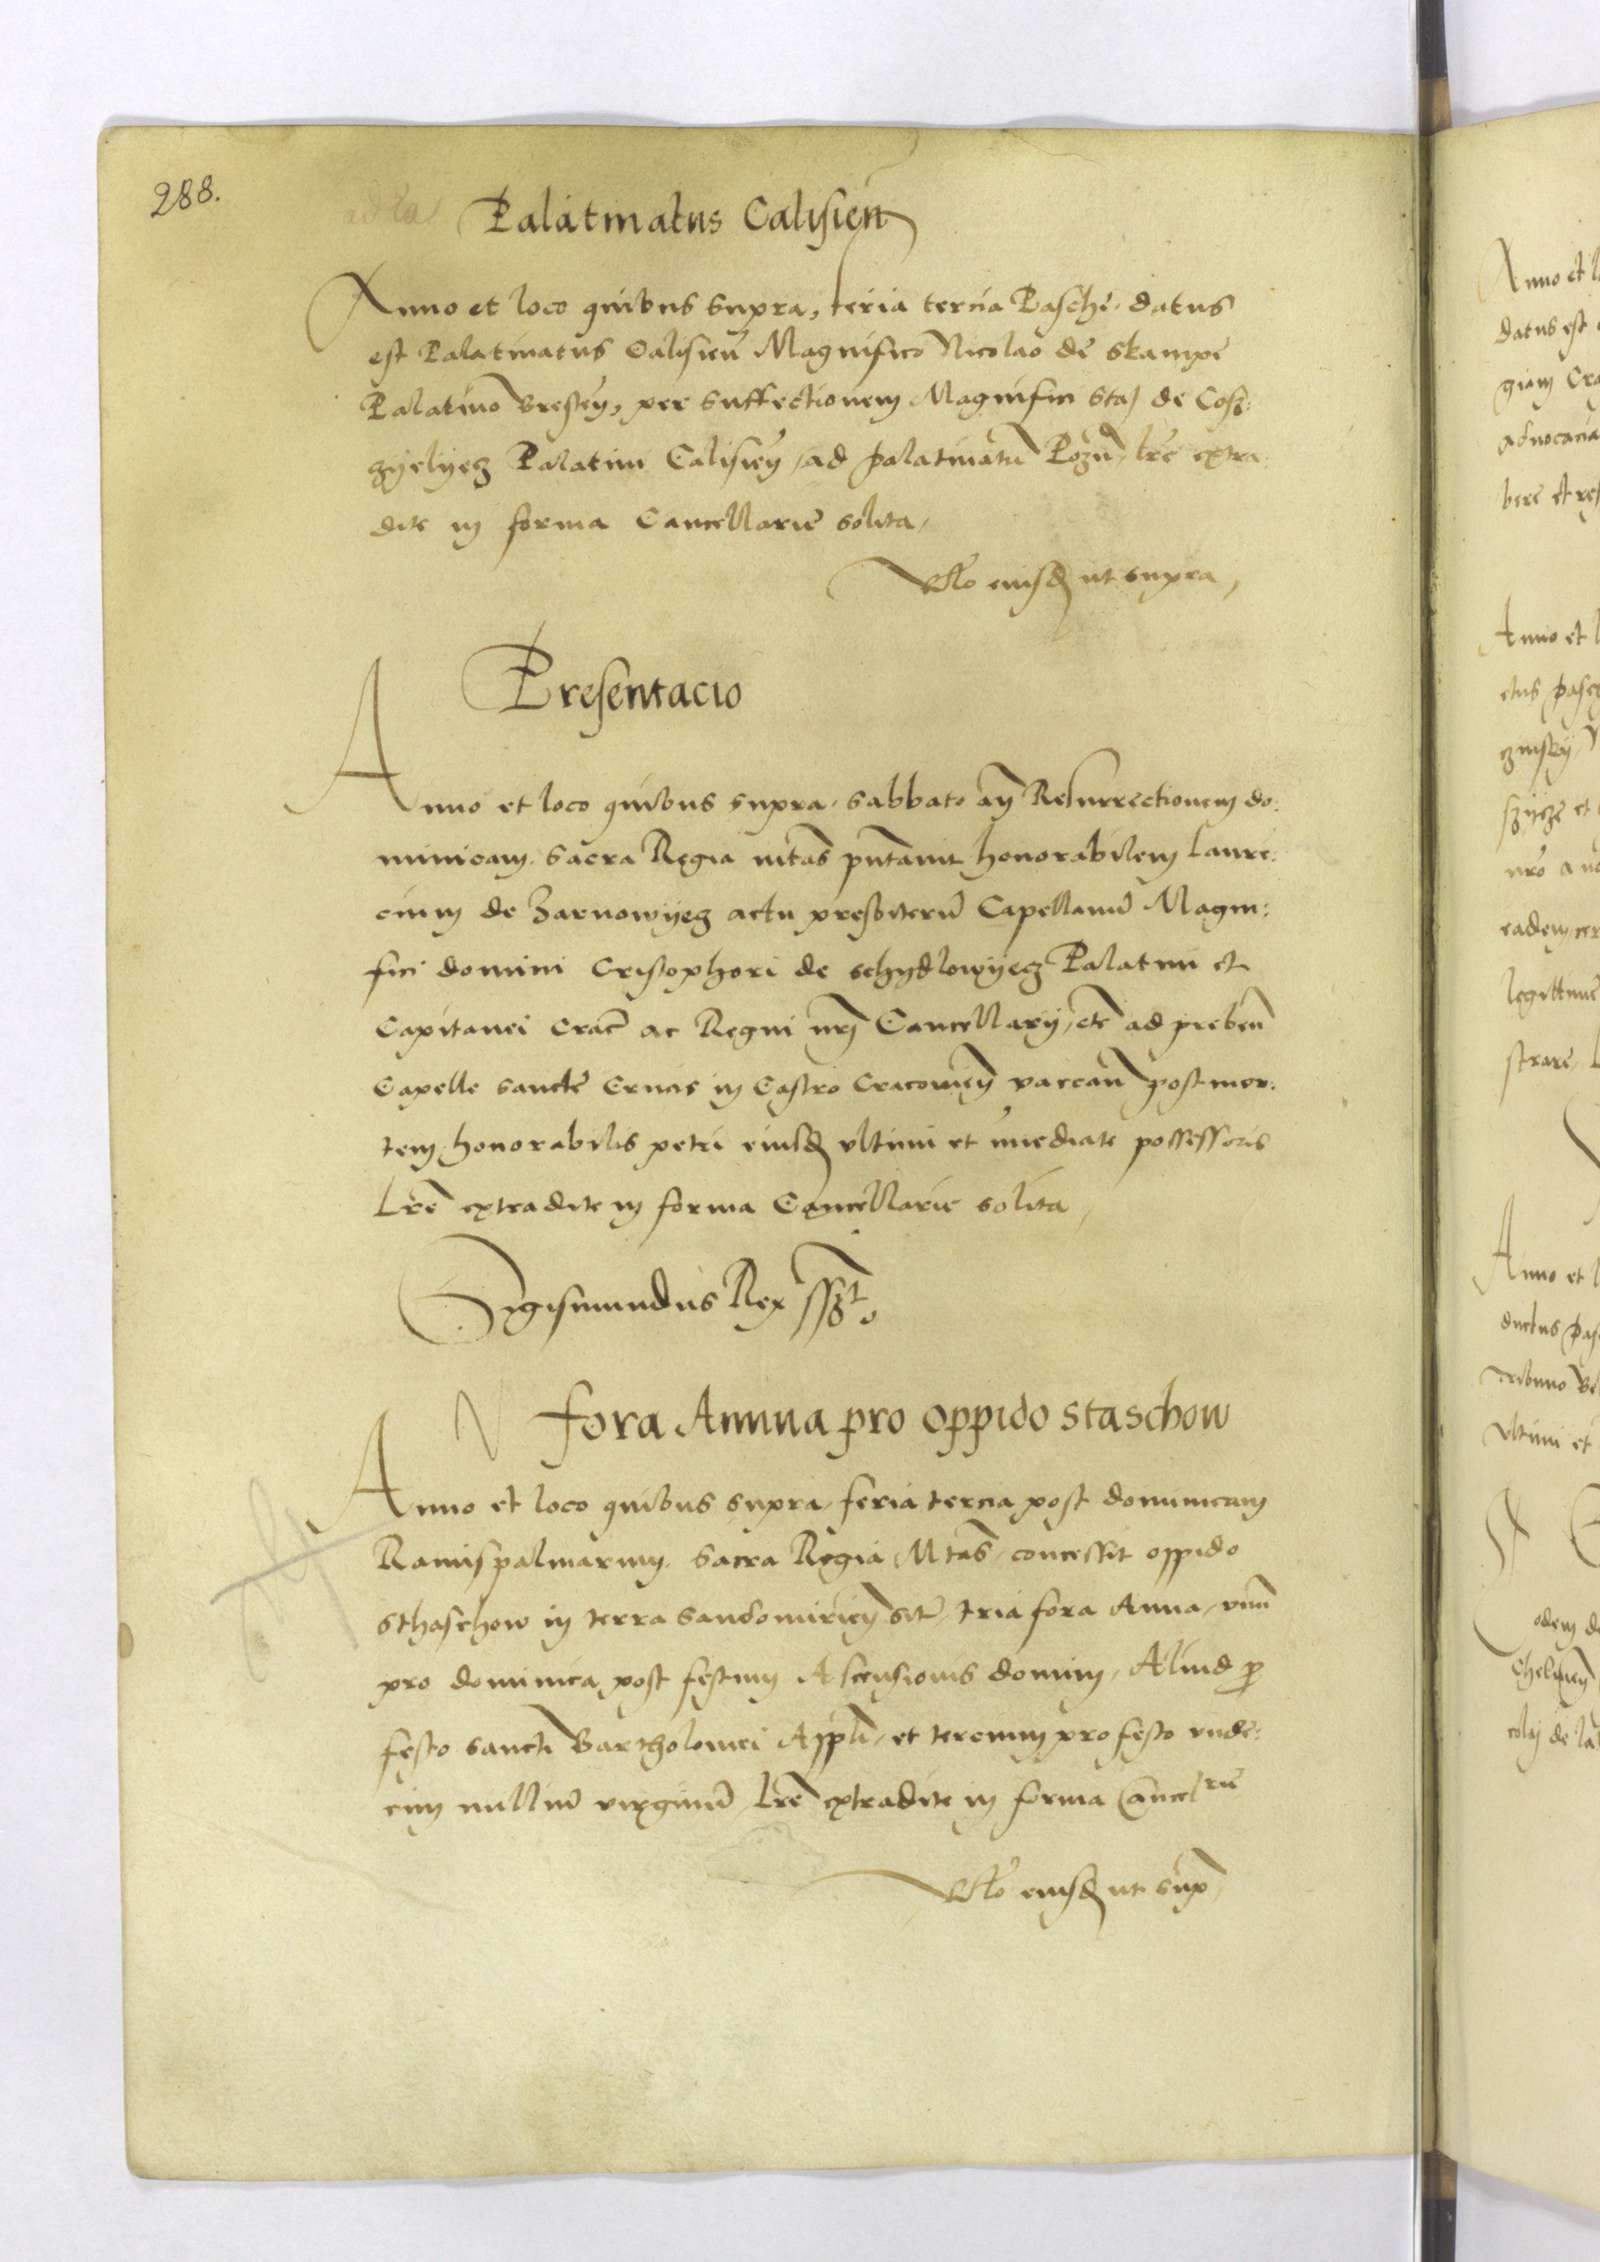 288.
Palatinatus Calisien
Anno et loco quibus supra, feria tercia Pasche, datus
est Palatinatus Calisien Magnifico Nicolao de Skampe
Palatino Bresten, per suffectionem Magnifici Sta de Cosz:
czyelyecz Palatini Calisien, ad palatinatu Pozn, lre extra:
dite in forma Cancellarie solita,
Rlo eiusd ut supra,
Presentacio
Anno et loco quibus supra, sabbato an Resurrectionem do:
minicam, Sacra Regia mtas pntavit honorabilem Laure:
cium de Zarnowyecz actu presbiteru Capellanu Magni:
fici domini Cristophori de Schydlowyecz Palatini et
Capitanei Crac ac Regni nri Cancellarij, etc ad preben
Capelle sancte Crucis in Castro Cracovien vaccan post mor:
tem honorabilis petri eiusd ultimi et imediate possessoris
Lre extradite in forma Cancellarie solita,
Sigismundus Rex sszt
fora Annua pro oppido staschow
Anno et loco quibus supra, feria tercia post dominicam
Ramispalmarum, Sacra Regia Mtas, concessit oppido
Sthaschow in terra Sandomirien sit, tria fora Annua, unu
pro dominica post festum Ascensionis domini, Aliud p
festo sancti Bartholomei Appli, et tercium pro festo unde:
cim milliu virginu, Lre extradite in forma Cancelrie
Rlo eiusd ut sup,
Anno et l
datus est
giam Cra
advocacia
bere et res
Anno et l
ctus pasc
eadem
legittime
strare, L
Anno et l
ductus pas
Tribuno Be
ultimi et
odem d
Chelmen
colaj de la